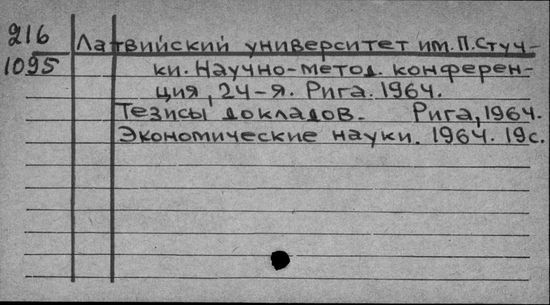 216
1095
Латвийский университет им. П. Стуч-
ки. Научно-метод. конферен-
ция, 24-я. Рига. 1964.
Тезисы докладов. Рига, 1964.
Экономические науки. 1964. 19с.